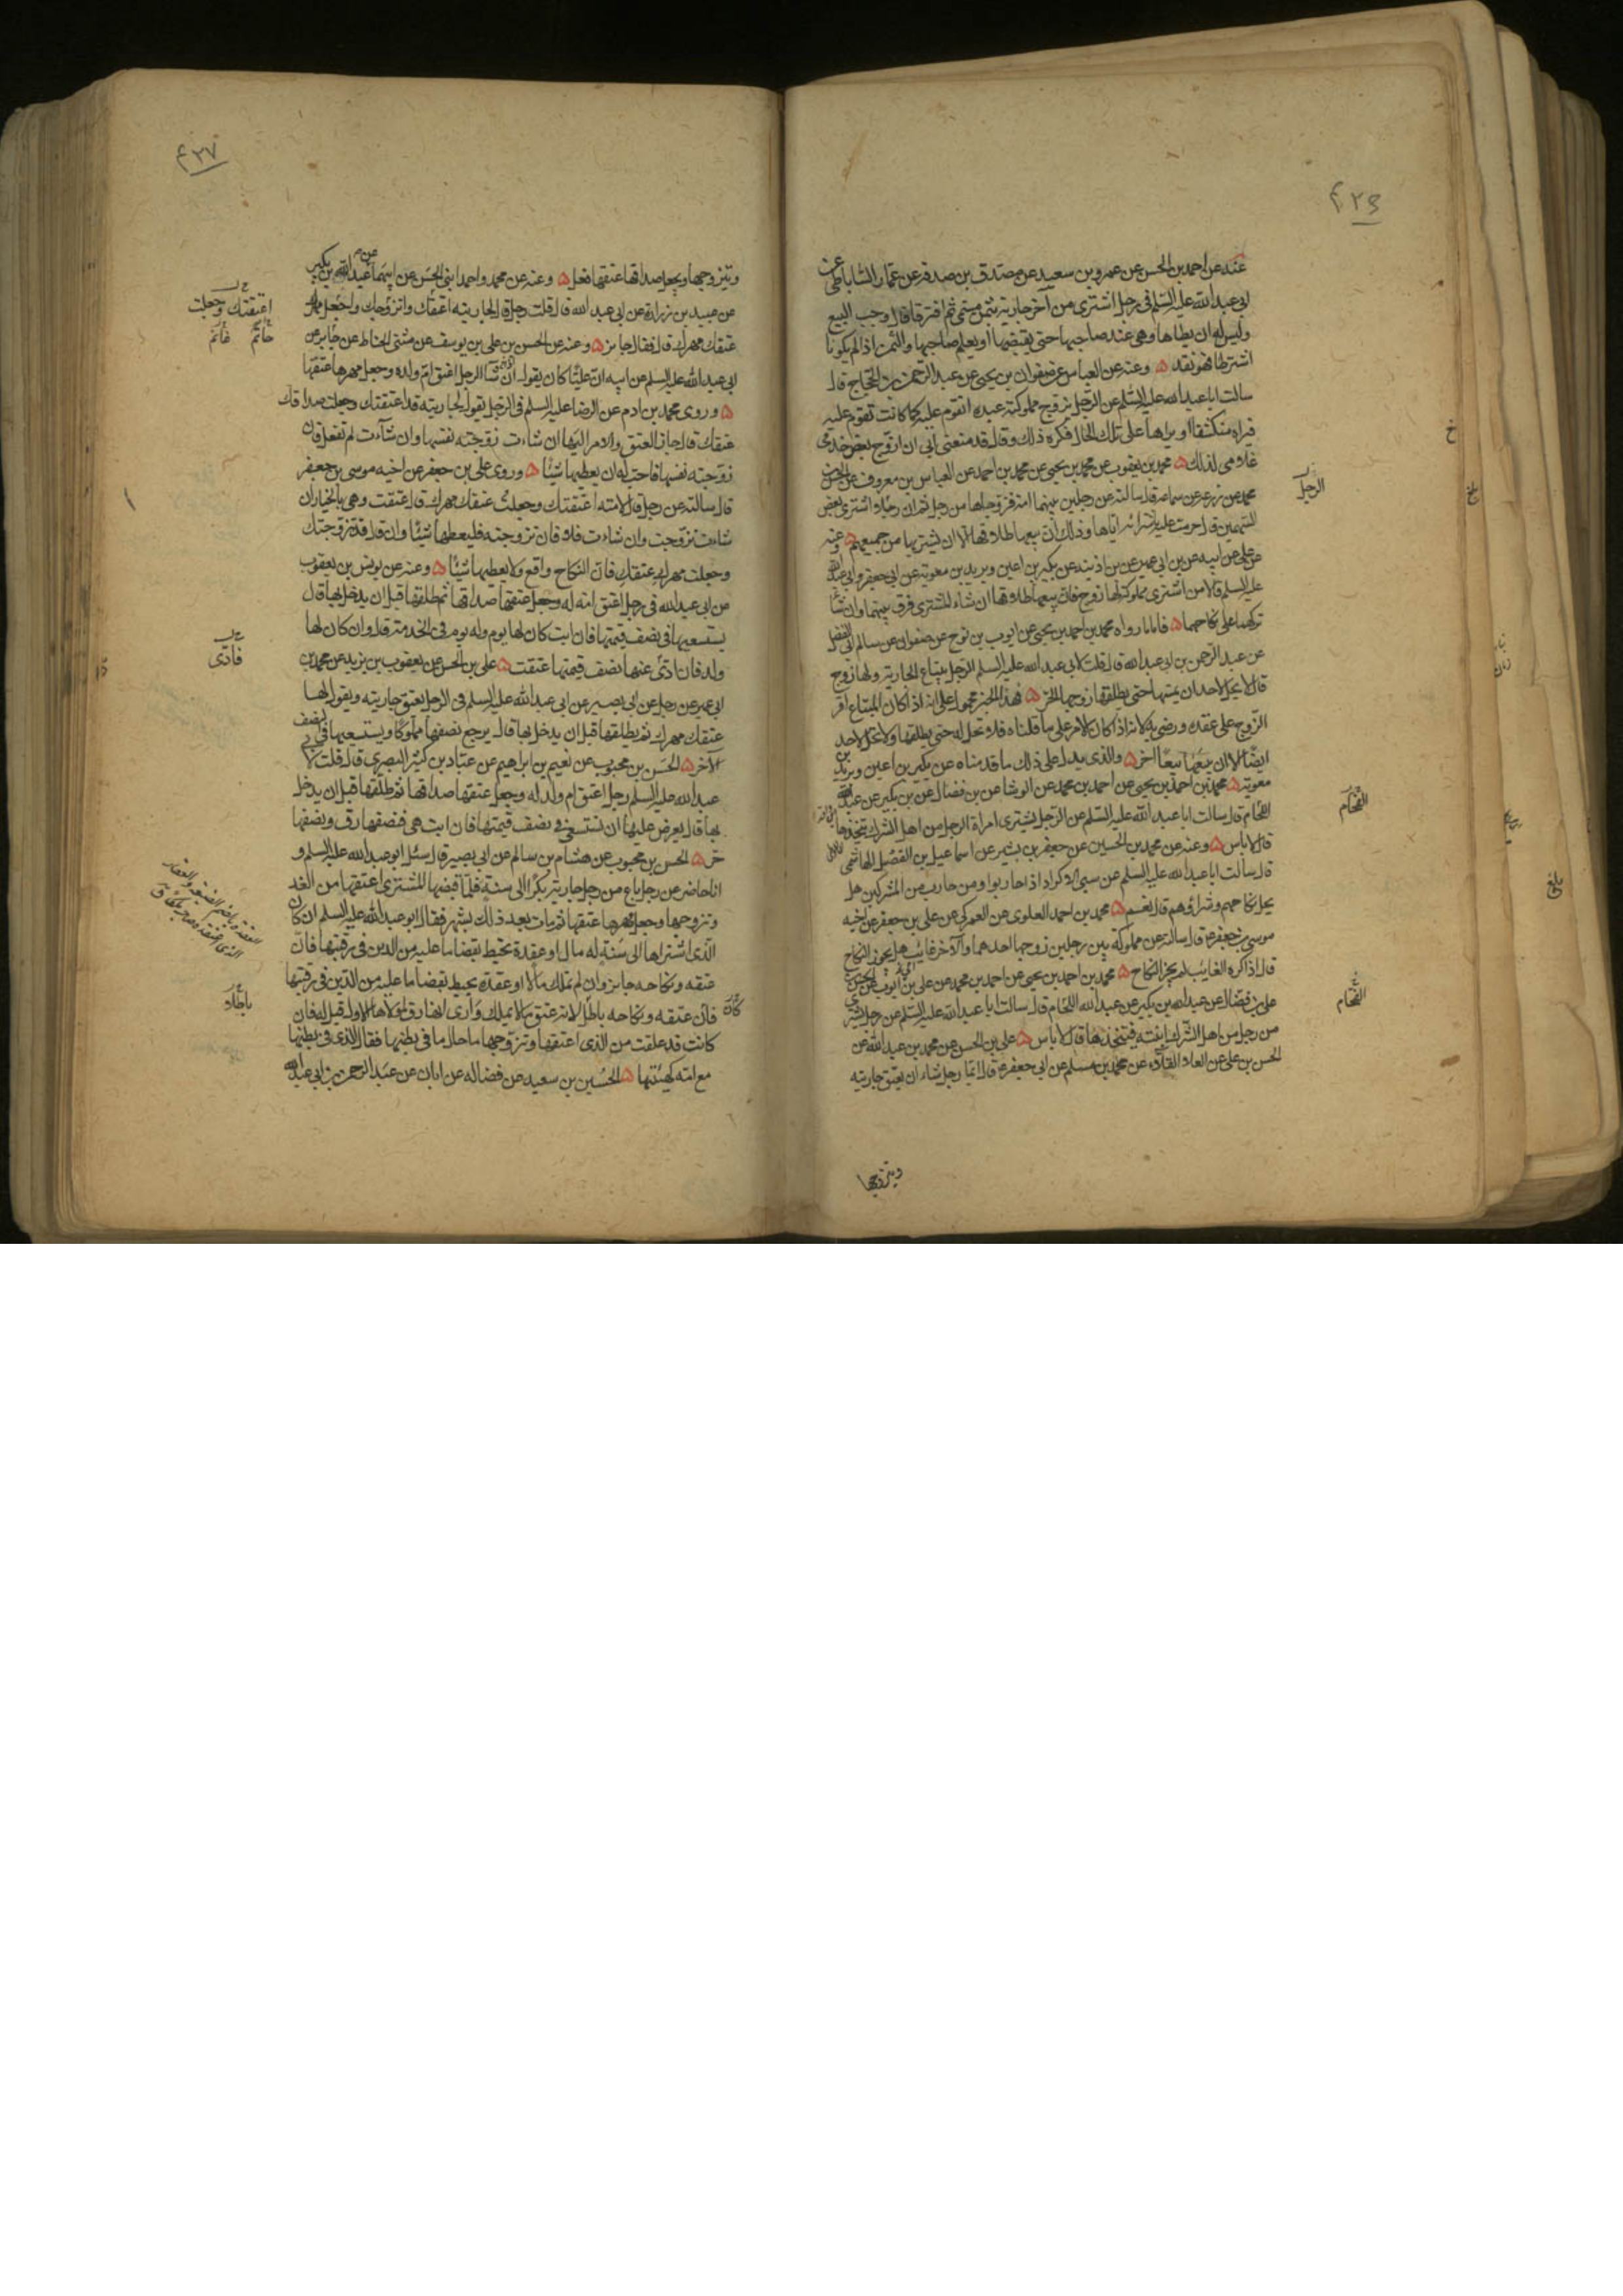 ٤٢٦
عنه عن احمد بن الحسن عن عمرو بن سعيد عن مصدق بن صدقة عن عمار الساباطى عن
ابى عبد الله عليه السلم فى رجل اشترى من آخر جارية بثمن مسمى ثم افترقا قال وجب البيع
وليس له ان يطاها وهى عند صاحبها حتى يقبضها او يعلم صاحبها والثمن اذا لم يكونا
اشترطا فهو نقد وعنه عن العباس عن صفوان بن يحيى عن عبد الرحمن بن الحجاج قال
سالت ابا عبد الله عليه السلم عن الرجل يزوج مملوكته عبده اتقوم عليه كما كانت تقوم عليه
فراه منكشفا او يراها على تلك الحال فكره ذلك وقال قد منعنى ابى ان ازوج بعض خدمى
غلامى لذلك محمد بن يعقوب عن محمد بن يحيى عن محمد بن احمد عن العباس بن معروف عن الحسن بن
محمد عن زرعة عن سماعة قال سالته عن رجلين بينهما امة فزوجاها من رجل ثم ان رجلا اشترى بعض
السهمين قال حرمت عليه باشترائه اياها وذلك ان بيعها طلاقها الا ان يشتريها من جميعهم وعنه
عن على عن ابيه عن بن ابى عمير عن بن اذينه عن بكير بن اعين وبريد بن معوية عن ابى جعفر وابى عبد الله
عليه السلم قالا من اشترى مملوكة لها زوج فان بيعها طلاقها ان شاء المشترى فرق بينهما وان شاء
تركهما على نكاحهما فاما ما رواه محمد بن احمد بن يحيى عن ايوب بن نوح عن صفوان عن سالم ابى الفضل
عن عبد الرحمن بن ابى عبد الله قال قلت لابى عبد الله عليه السلم الرجل يبتاع الجارية ولها زوج
قال لا يحل لاحد ان يمسها حتى يطلقها زوجها الحر فهذا الخبر محمول على انه اذا كان المبتاع اقر
الزوج على عقده ورضى به لانه اذا كان الامر على ما قلناه فلا تحل له حتى يطلقها ولا تحل لاحد
ايضا الا ان يبيعها بيعا اخر والذى يدل على ذلك ما قدمناه عن بكير بن اعين وبريد بن
معوية محمد بن احمد بن يحيى عن احمد بن محمد عن الوشا عن بن فضال عن بن بكير عن عبد الله
اللحام قال سالت ابا عبد الله عليه السلم عن الرجل يشترى امراة الرجل من اهل الشرك يتخذها
قال لا باس وعنه عن محمد بن الحسين عن جعفر بن بشير عن اسماعيل بن الفضل الهاشمى
قال سالت ابا عبد الله عليه السلم عن سبى الاكراد اذا حاربوا ومن حارب من المشركين هل
يحل نكاحهم وشراؤهم قال نعم محمد بن احمد العلوى عن العمركى عن على بن جعفر عن اخيه
موسى بن جعفر ع قال سالته عن مملوكة بين رجلين زوجها احدهما والآخر غايب هل يجوز النكاح
قال اذا كره الغايب لم يجز النكاح محمد بن احمد بن يحيى عن احمد بن محمد عن على بن ايوب عن الحسن بن
على بن فضال عن عبد الله بن بكير عن عبد الله اللحام قال سالت ابا عبد الله عليه السلم عن رجل يشترى
من رجل من اهل الشرك ابنته فيتخذها قال لا باس على بن الحسن عن محمد بن عبد الله عن
الحسن بن على عن العلاء القلاء عن محمد بن مسلم عن ابى جعفر ع قال ايما رجل شاء ان يعتق جاريته
ويتزوجها
الرجل
اللحام
اللحام
٤٢٧
ويتزوجها ويجعل صداقها عتقها فعل وعنه عن محمد واحمد ابنى الحسن عن ابيهما عن عبد الله بن بكير
عن عبيد بن زرارة عن ابى عبد الله قال قلت رجل قال لجاريته اعتقك واتزوجك واجعل مهرك
عتقك مهرك قال فقال جايز وعنه عن الحسن بن على بن يوسف عن مثنى الحناط عن جابر عن
ابى عبد الله عليه السلم عن ابيه ان عليا كان يقول ان شا الرجل اعتق ام ولده وجعل مهرها عتقها
وروى محمد بن ادم عن الرضا عليه السلم فى الرجل يقول لجاريته قد اعتقتك وجعلت صداقك
عتقك قال جاز العتق والامر اليها ان شاءت زوجته نفسها وان شآءت لم تفعل فان
زوجته نفسها فاحب له ان يعطيها شيئا وروى على بن جعفر عن اخيه موسى بن جعفر
قال سالته عن رجل قال لامته اعتقتك وجعلت عتقك مهرك قال عتقت وهى بالخيار ان
شاءت تزوجت وان شاءت فلا فان تزوجته فليعطها شيئا وان قال قد تزوجتك
وجعلت مهرك عتقك فان النكاح واقع ولا يعطيها شيئا وعنه عن يونس بن يعقوب
عن ابى عبد الله فى رجل اعتق امة له وجعل عتقها صداقها ثم طلقها قبل ان يدخل بها قال
يستسعيها فى نصف قيمتها فان ابت كان لها يوم وله يوم فى الخدمة قال وان كان لها
ولد فان ادى عنها نصف قيمتها عتقت على بن الحسن عن يعقوب بن يزيد عن محمد بن
ابى عمير عن رجل عن ابى بصير عن ابى عبد الله عليه السلم فى الرجل يعتق جاريته ويقول لها
عتقك مهرك ثم يطلقها قبل ان يدخل بها قال يرجع نصفها مملوكا ويستسعيها فى النصف
الآخر الحسن بن محبوب عن نعيم بن ابراهيم عن عباد بن كثير البصرى قال قلت لابى
عبد الله عليه السلم رجل اعتق ام ولد له وجعل عتقها صداقها ثم طلقها قبل ان يدخل
بها قال يعرض عليها ان تستسعى فى نصف قيمتها فان ابت هى فنصفها رق ونصفها
حر الحسن بن محبوب عن هشام بن سالم عن ابى بصير قال سئل ابو عبد الله عليه السلم و
انا حاضر عن رجل باع من رجل جارية بكرا الى سنة فلما قبضها المشترى اعتقها من الغد
وتزوجها وجعل مهرها عتقها ثم مات بعد ذلك بشهر فقال ابو عبد الله عليه السلم ان كان
الذى اشتراها الى سنة له مال او عقدة تحيط بقضا ما عليه من الدين فى رقبتها فان
عتقه ونكاحه جايز وان لم تملك مالا او عقدة يحيط بقضا ما عليه من الدين فى رقبتها كان
فان عتقه ونكاحه باطل لانه عتق ما لا يملك وارى انها رق لمولاها الاول قيل له فان
كانت قد علقت من الذى اعتقها وتزوجها ما حال ما فى بطنها فقال الذى فى بطنها
مع امه كهيئتها الحسين بن سعيد عن فضاله عن ابان عن عبد الرحمن بن ابى عبد الله
اعتقتك وجعلت
فادى
باطلا